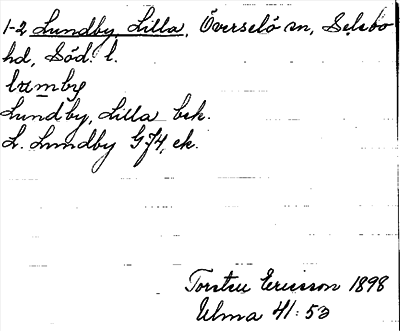 1-2 Lundby, Lilla, Överselö sn, Selebo
hd, Söd. l.
lumby
Lundby, Lilla bsk.
L. Lundby G74, ek.
Torsten Ericsson 1898
Ulma 41:53